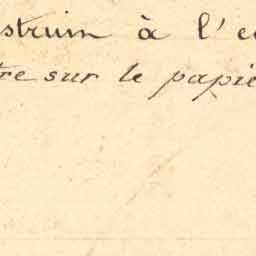 struim à l'e
tre sur le papie